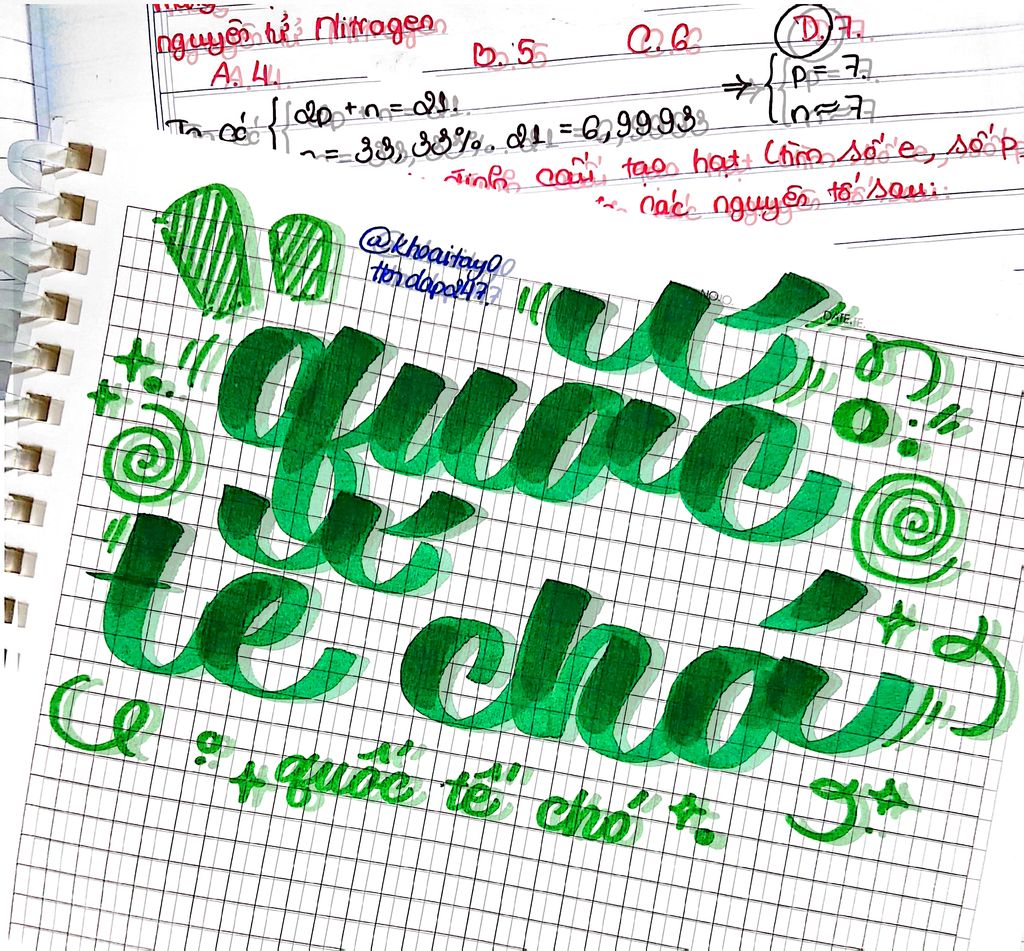 nguyên tử Nitrogen
A. 4. B. 5 C. 6 D. 7.
Ta có { 2p + n = 21. ⇒ { p = 7.
n = 33,33%. 21 = 6,9993 n ≈ 7
cấu tạo hạt (tìm số e, số p
các nguyên tố sau:
@khoaitay00
Hoidap247.
NO.
DATE.
quốc
tế chó
quốc tế chó